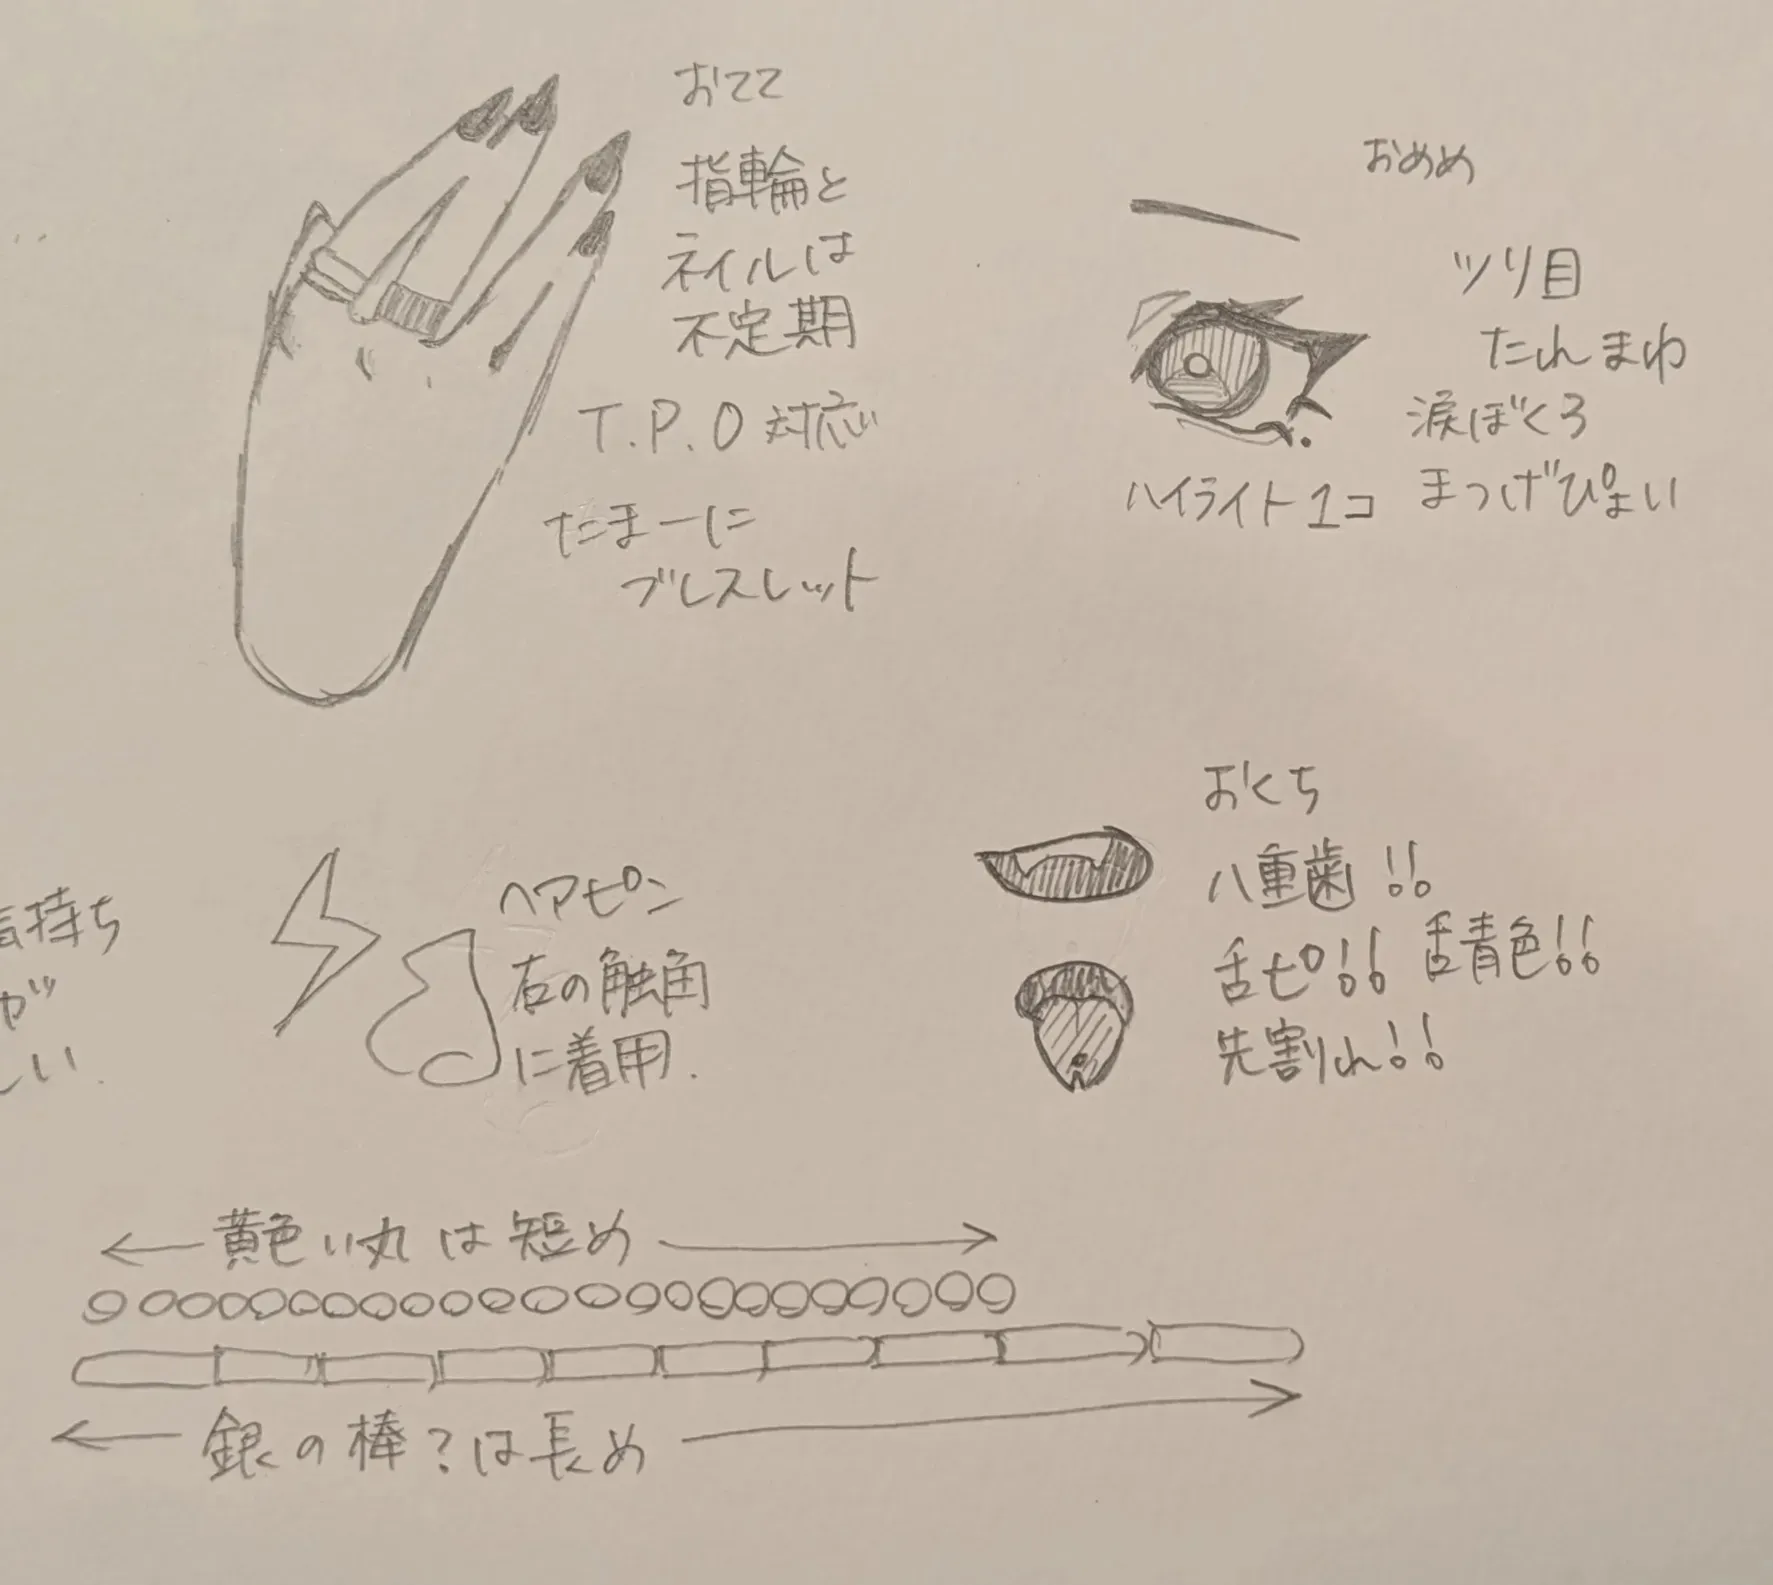 おてて
指輪と
ネイルは
不定期
T.P.O 対応
たまーに
ブレスレット
おめめ
ツリ目
たれまゆ
涙ぼくろ
まつげぴょい
ハイライト1コ
持ち
が
しい.
ヘアピン
右の触角
に着用.
おくち
八重歯!!
舌ピ!! 舌青色!!
先割れ!!
黄色い丸は短め
銀の棒?は長め